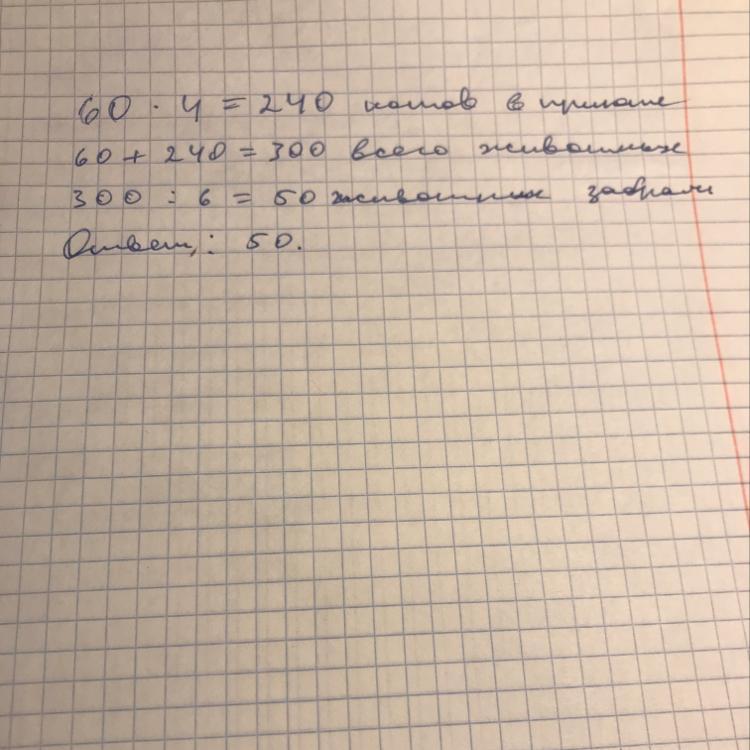 60 · 4 = 240 котов в приюте
60 + 240 = 300 всего животных
300 : 6 = 50 животных забрали
Ответ: 50.